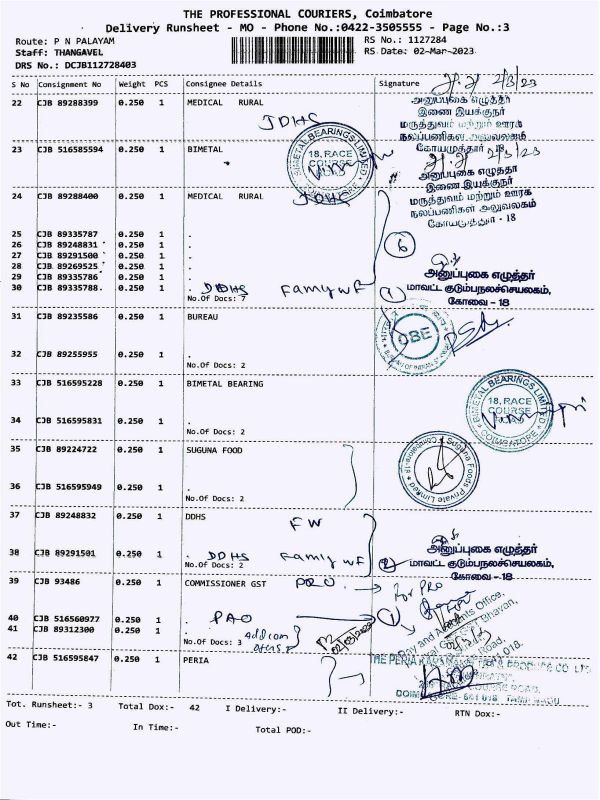 THE PROFESSIONAL COURIERS, Coimbatore
Delivery Runsheet - MO - Phone No.:0422-3505555 - Page No.:3
Route: P N PALAYAM RS No.: 1127284
Staff: THANGAVEL RS Date: 02-Mar-2023
DRS No.: DCJB112728403
S No Consignment No Weight PCS Consignee Details Signature
22 CJB 89288399 0.250 1 MEDICAL RURAL
JDHS
2/3/23
அனுப்புகை எழுத்தர்
இணை இயக்குநர்
மருத்துவம் மற்றும் ஊரக
நலப்பணிகள் அலுவலகம்
கோயமுத்தூர்
23 CJB 516585594 0.250 1 BIMETAL
BIMETAL BEARINGS LIMITED
18, RACE
COURSE
2/3/23
அனுப்புகை எழுத்தர்
இணை இயக்குநர்
மருத்துவம் மற்றும் ஊரக
நலப்பணிகள் அலுவலகம்
கோயமுத்தூர் - 18
24 CJB 89288400 0.250 1 MEDICAL RURAL JDHS
25 CJB 89335787 0.250 1 .
26 CJB 89248831 0.250 1 .
27 CJB 89291500 0.250 1 .
28 CJB 89269525 0.250 1 .
29 CJB 89335786 0.250 1 .
30 CJB 89335788 0.250 1 . DDHS Family WF
No.Of Docs: 7
6
1
அனுப்புகை எழுத்தர்
மாவட்ட குடும்பநலச்செயலகம்,
கோவை - 18
31 CJB 89235586 0.250 1 BUREAU
OBE
32 CJB 89255955 0.250 1 .
No.Of Docs: 2
33 CJB 516595228 0.250 1 BIMETAL BEARING
BIMETAL BEARINGS LIMITED
18, RACE
COURSE
ROAD
COIMBATORE
34 CJB 516595831 0.250 1 .
No.Of Docs: 2
35 CJB 89224722 0.250 1 SUGUNA FOOD
Suguna Foods Private Limited
Coimbatore-18
36 CJB 516595949 0.250 1 .
No.Of Docs: 2
37 CJB 89248832 0.250 1 DDHS FW
38 CJB 89291501 0.250 1 . DDHS Family WF
No.Of Docs: 2
2
அனுப்புகை எழுத்தர்
மாவட்ட குடும்பநலச்செயலகம்,
கோவை - 18
39 CJB 93486 0.250 1 COMMISSIONER GST PRO
for PRO
40 CJB 516560977 0.250 1 . PAO
1
41 CJB 89312300 0.250 1 .
No.Of Docs: 3
02/03/2023
Pay and Accounts Office,
Bhavan,
Road,
42 CJB 516595847 0.250 1 PERIA
THE PERIA PRODUCE CO. LTD
COURSE ROAD,
COIMBATORE - 641 018. TAMIL NADU
Tot. Runsheet:- 3 Total Dox:- 42 I Delivery:- II Delivery:- RTN Dox:-
Out Time:- In Time:- Total POD:-